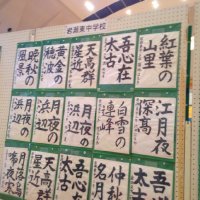 岩瀬東中学校
紅葉の
山里
吾心在
太古
天高群
星近
黄金の
穂波
晩秋の
風景
江月夜
深高
白雪の
連峰
月夜の
浜辺
月夜の
浜辺
月夜の
浜辺
仲秋
名月
吾心在
太古
天高群
星近